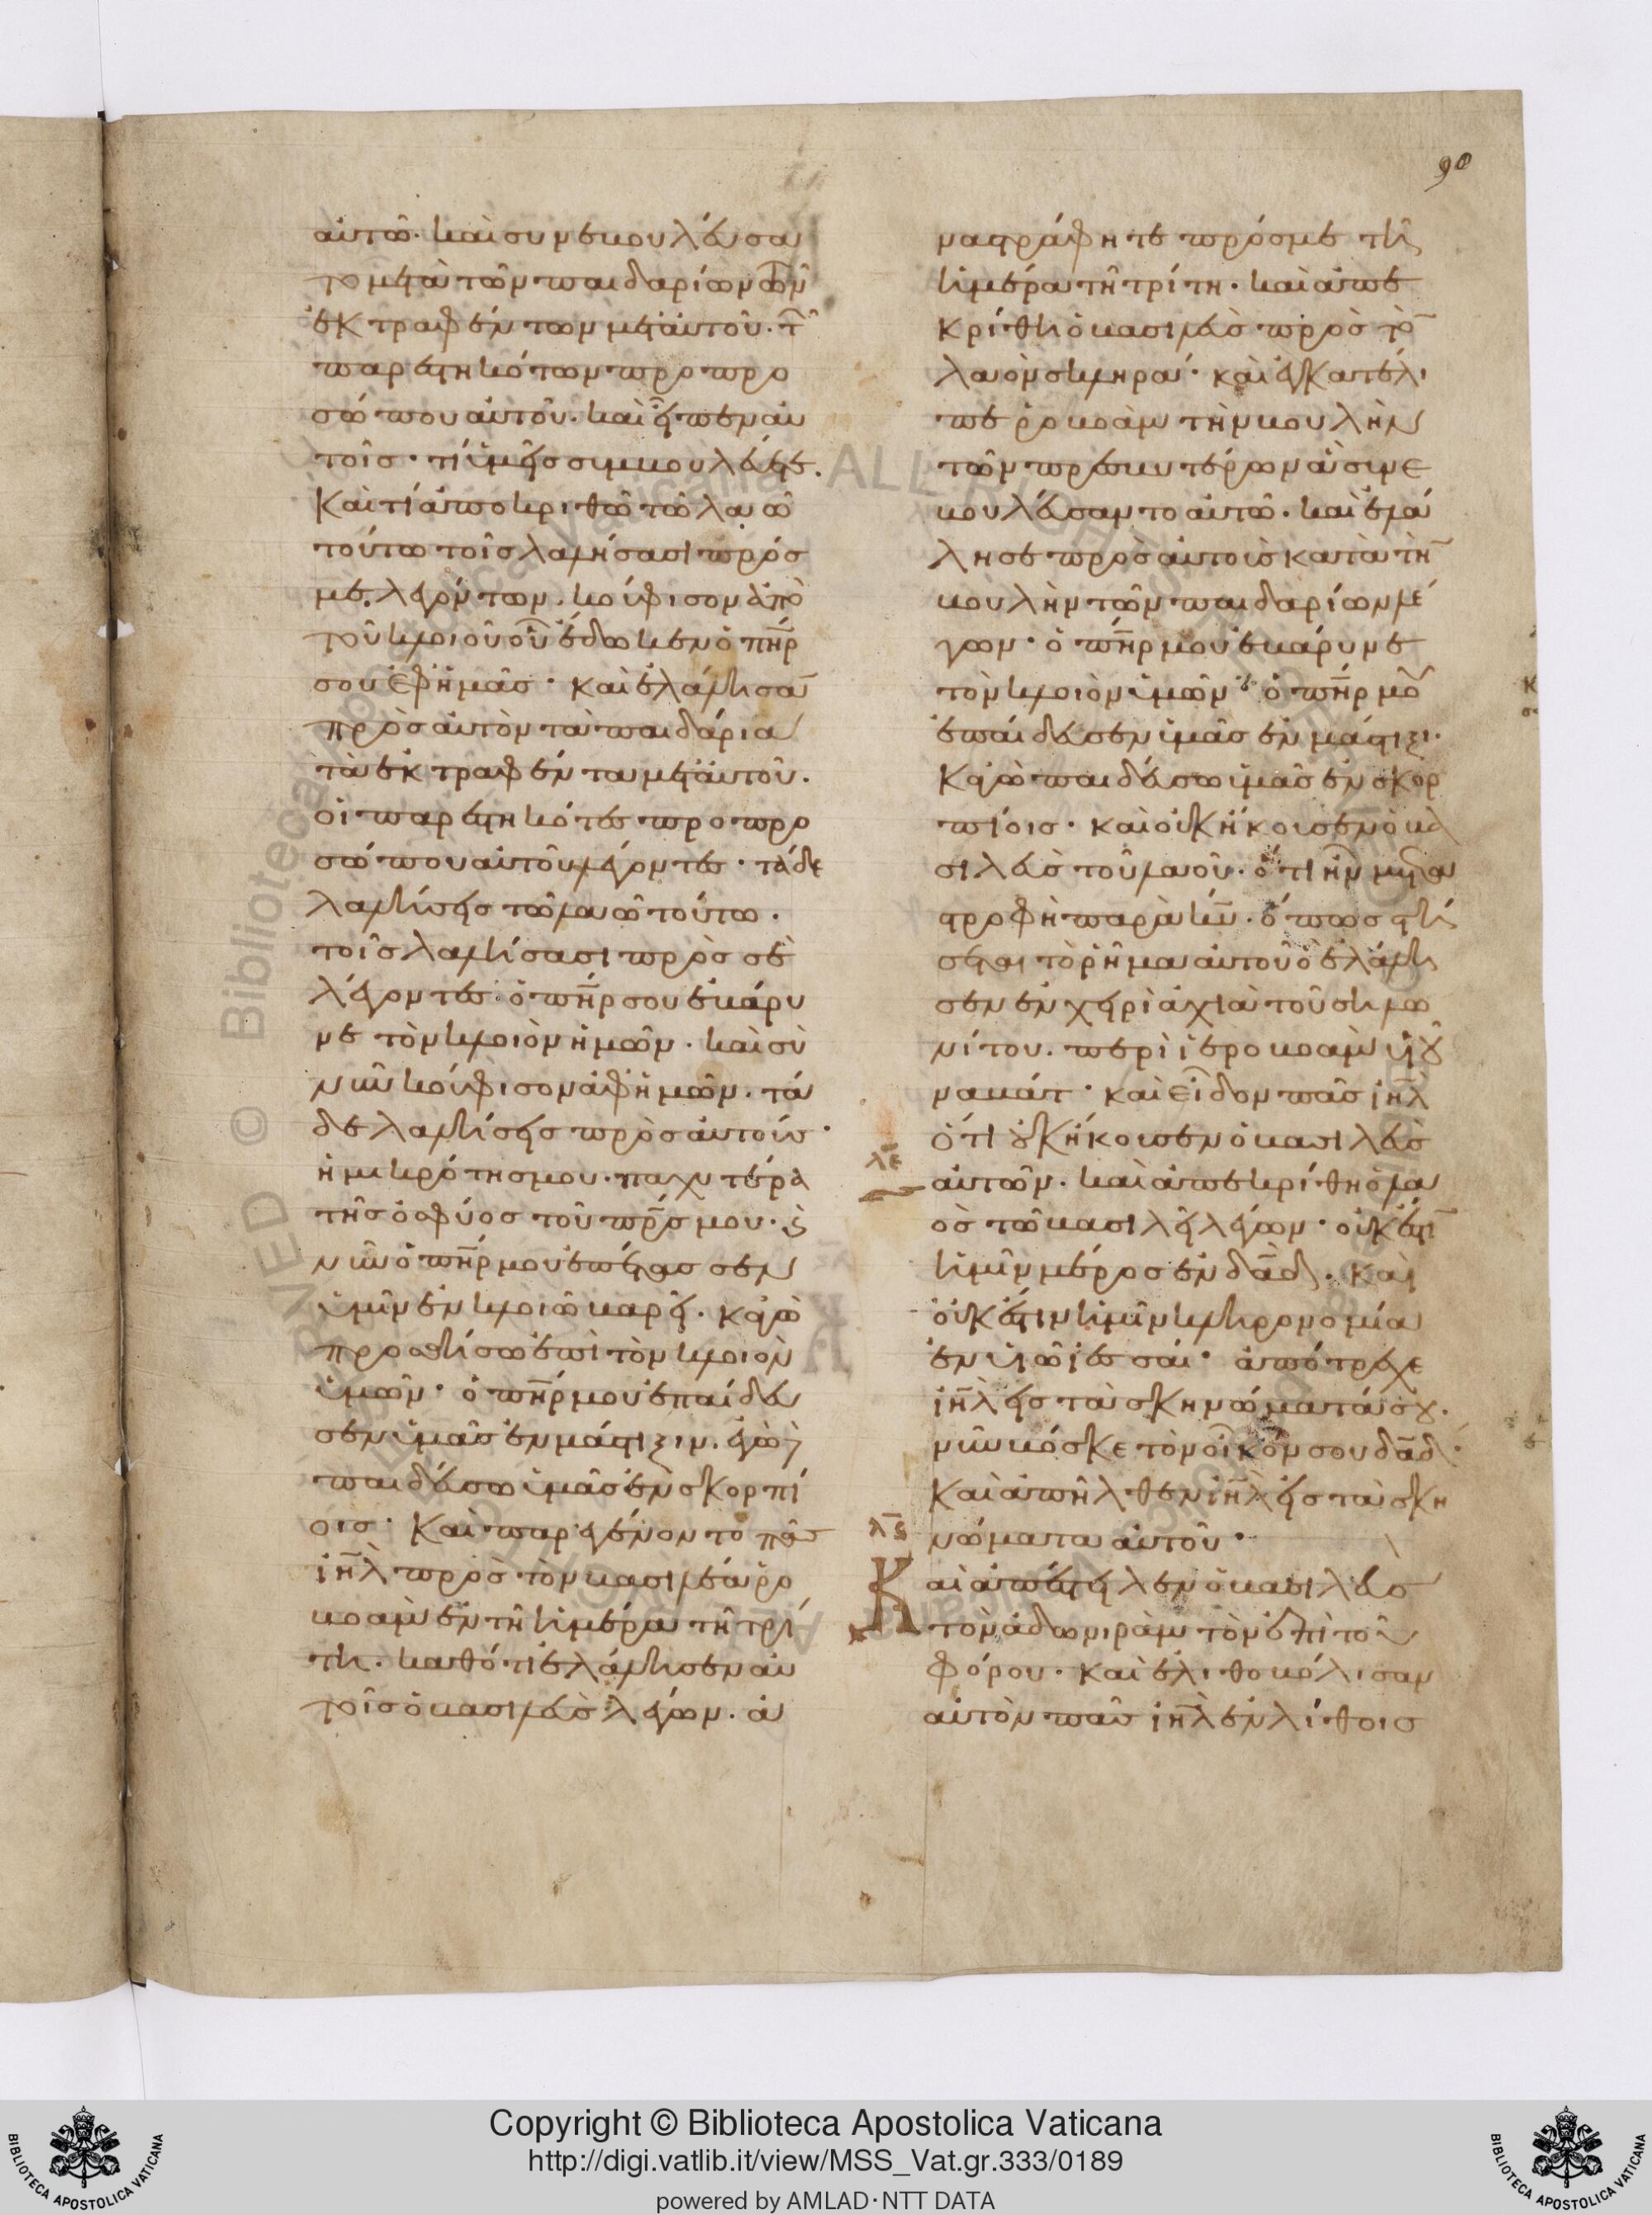 90
αὐτῶ· καὶ συνεβουλεύσα
το μετὰ τῶν παιδαρίων τῶν
ἐκτραφέντων μετ' αὐτοῦ· τῶ
παρεστηκότων προ προ
σώπου αὐτοῦ· καὶ εἶπεν αὐ
τοῖς· τί ὑμεῖς συμβουλεύετε.
Καὶ τί ἀποκριθῶ τῶ λαῶ
τούτω τοῖς λαλήσασι πρός
με. λεγόντων. κούφισον ἀπὸ
τοῦ κλοιοῦ οὗ ἔδωκεν ὁ πη̅ρ
σου ἐφ' ἡμᾶς· καὶ ἐλάλησα̅
πρὸς αὐτὸν τὰ παιδάρια
τὰ ἐκτραφέντα μετ' αὐτοῦ.
οἱ παρεστηκότες προ προ
σώπου αὐτοῦ λέγοντες· τάδε
λαλήσεις τῶ λαῶ τούτω.
τοῖς λαλήσασι πρὸς σὲ
λέγοντες· ὁ πη̅ρ σου ἐβάρυ
νε τὸν κλοιὸν ἡμῶν. καὶ σὺ
νῦν κούφισον ἀφ' ἡμῶν. τά
δε λαλήσεις πρὸς αὐτούς·
ἡ μικρότης μου. παχυτέρα
τῆς ὀσφύος τοῦ πρ̅ς μου. καὶ
νῦν ὁ πη̅ρ μου ἐπέτασσεν
ὑμῖν ἐν κλοιῶ βαρεῖ. κἀγὼ
προσθήσω ἐπὶ τὸν κλοιὸν
ὑμῶν· ὁ πη̅ρ μου ἐπαίδευ
σεν ὑμᾶς ἐν μάστιξιν. ἐγὼ
παιδεύσω ὑμᾶς ἐν σκορπί
οις· Καὶ παρεγένοντο πᾶς
ιη̅λ πρὸς τὸν βασιλέα ῥο
βοὰμ ἐν τῆ ἡμέρα τῆ τρί
τη. καθότι ἐλάλησεν αὐ
τοῖς ὁ βασιλεὺς λέγων. ἀ
ναστράφητε πρός με τῆ
ἡμέρα τῆ τρίτη. καὶ ἀπε
κρίθη ὁ βασιλεὺς πρὸς τὸ̅
λαὸν σκληρά· καὶ ἐγκατέλι
πε ῥοβοὰμ τὴν βουλὴν
τῶν πρεσβυτέρων ἃ συνε
βουλεύσαντο αὐτῶ. καὶ ἐλά
λησε πρὸς αὐτοὺς κατὰ τὴ̅
βουλὴν τῶν παιδαρίων λέ
γων· ὁ πη̅ρ μου ἐβάρυνε
τὸν κλοιὸν ὑμῶν· ὁ πη̅ρ μου
ἐπαίδευσεν ὑμᾶς ἐν μάστιξι.
Κἀγὼ παιδεύσω ὑμᾶς ἐν σκορ
πίοις. καὶ οὐκ ἤκουσεν ὁ βα
σιλεὺς τοῦ λαοῦ. ὅτι ἦν μετα
στροφὴ παρὰ κυ̅. ὅπως στή
σεται τὸ ῥῆμα αὐτοῦ ὃ ἐλάλη
σεν ἐν χειρὶ ἀχιὰ τοῦ σηλω
νίτου. περὶ ἱεροβοὰμ υἱοῦ
ναβάτ· καὶ εἶδον πᾶς ιη̅λ
ὅτι οὐκ ἤκουσεν ὁ βασιλεὺς
λε
αὐτῶν. καὶ ἀπεκρίθη ὁ λα
ὸς τῶ βασιλεῖ λέγων· οὐκ ἔστι̅
ἡμῖν μέρος ἐν δα̅δ. καὶ
οὐκ ἔστιν ἡμῖν κληρονομία
ἐν υἱῶ ἰεσσαί· ἀπότρεχε
ιη̅λ εἰς τὰ σκηνώματά σου.
νῦν βόσκε τὸν οἶκόν σου δα̅δ·
Καὶ ἀπῆλθεν ιη̅λ εἰς τὰ σκη
νώματα αὐτοῦ·
λϛ
Καὶ ἀπέστειλεν ὁ βασιλεὺς
τὸν ἀδωνιρὰμ τὸν ἐπὶ τοῦ
φόρου. καὶ ἐλιθοβόλισαν
αὐτὸν πᾶς ιη̅λ ἐν λίθοις
Copyright © Biblioteca Apostolica Vaticana
http://digi.vatlib.it/view/MSS_Vat.gr.333/0189
powered by AMLAD·NTT DATA
BIBLIOTECA APOSTOLICA VATICANA
BIBLIOTECA APOSTOLICA VATICANA